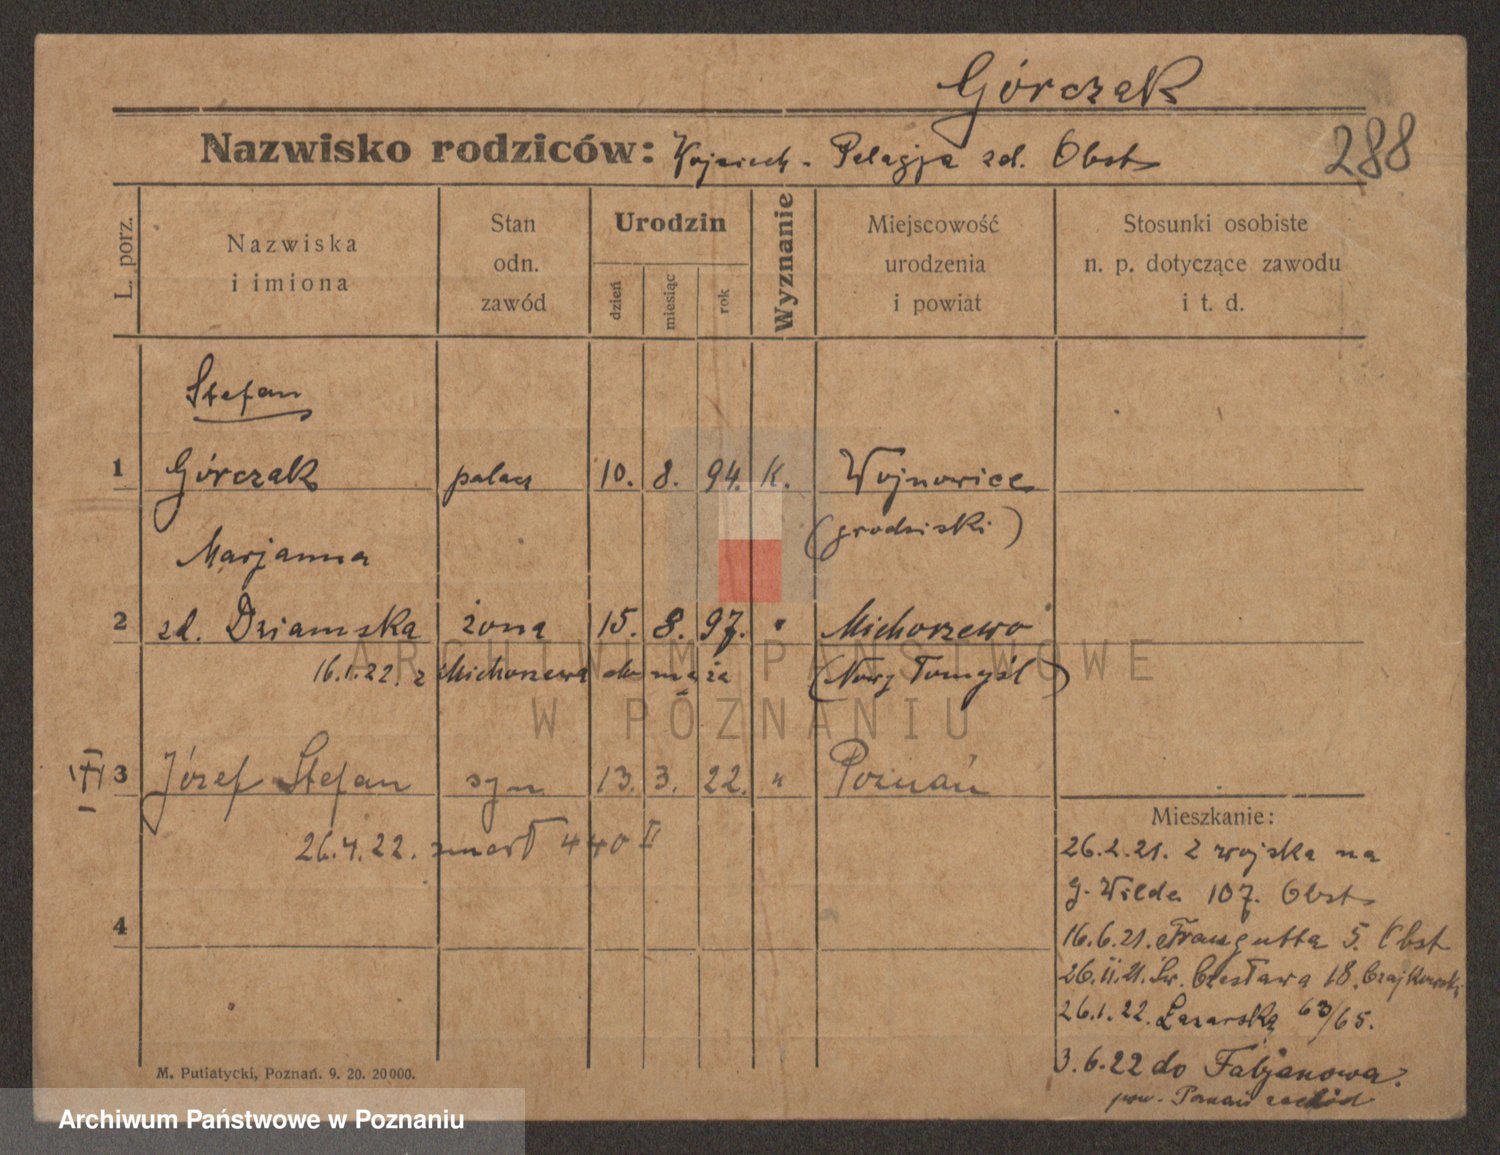 Górczak
288
Nazwisko rodziców: Wojciech - Pelagja zd. Obst
L. porz.
Nazwiska
i imiona
Stan
odn.
zawód
Urodzin
dzień
miesiąc
rok
Wyznanie
Miejscowość
urodzenia
i powiat
Stosunki osobiste
n. p. dotyczące zawodu
i t. d.
Stefan
1 Górczak palacz 10. 8. 94. K. Wojnowice
(grodziski)
Marjanna
2 zd. Dziamska żona 15. 8. 97. " Michorzewo
16.1.22. z Michorzewa do męża (Nowy Tomyśl)
3 Józef Stefan syn 13. 3. 22. " Poznań
26.4.22. zmarł 440 II
4
Mieszkanie:
26.2.21. z wojska na
G. Wilda 107. Obst
16.6.21. Traugutta 5. Obst
26.11.21. Św. Czesława 18. Czajkowski
26.1.22. Łazarska 63/65.
3.6.22 do Fabjanowa.
pow. Poznań zachód
M. Putiatycki, Poznań. 9. 20. 20000.
ARCHIWUM PAŃSTWOWE
W POZNANIU
Archiwum Państwowe w Poznaniu